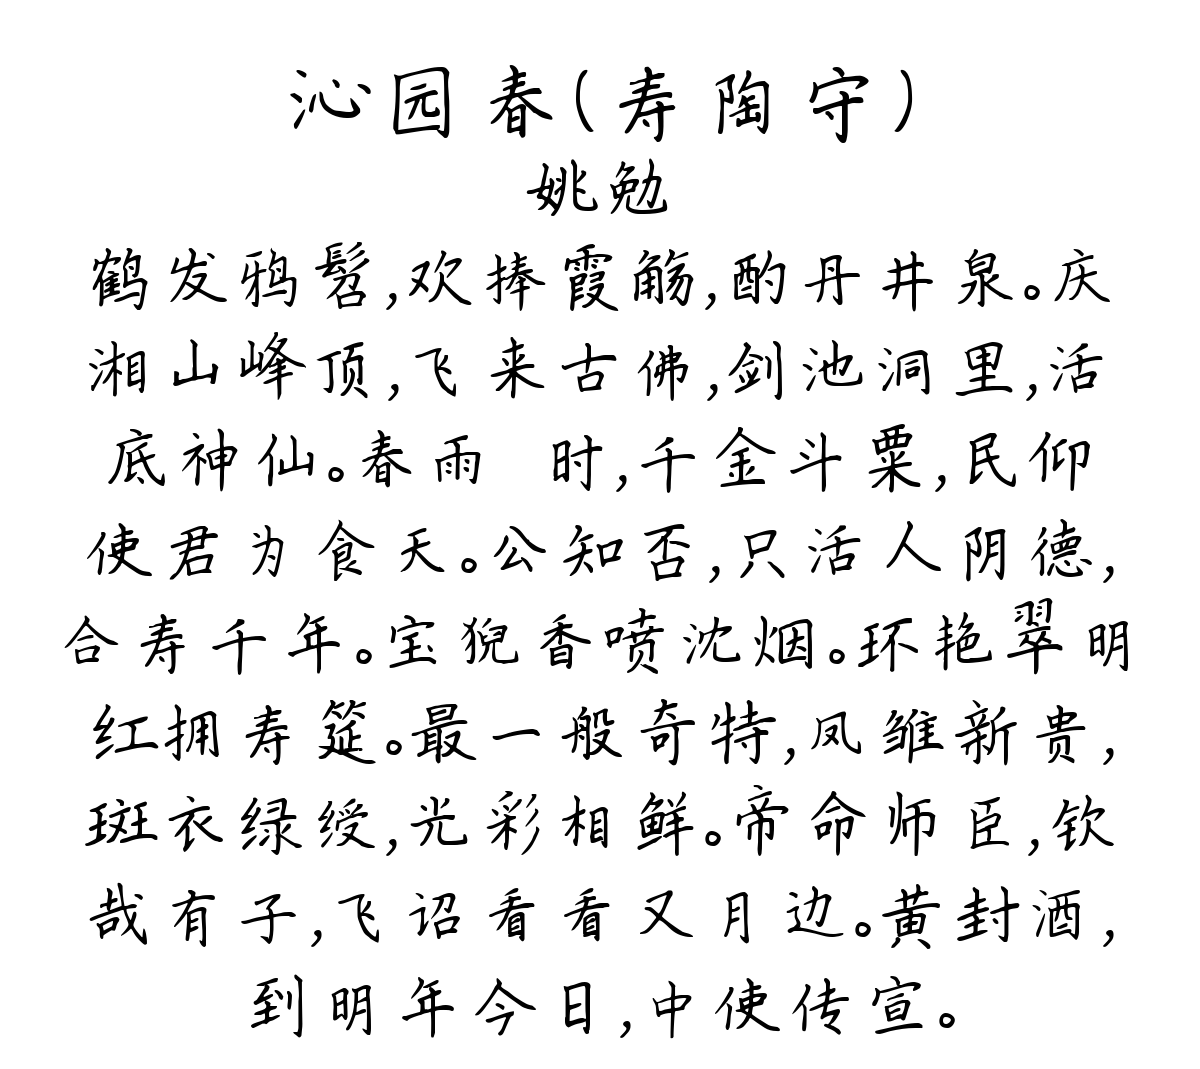 沁园春(寿陶守)
姚勉
鹤发鸦髫,欢捧霞觞,酌丹井泉。庆
湘山峰顶,飞来古佛,剑池洞里,活
底神仙。春雨 时,千金斗粟,民仰
使君为食天。公知否,只活人阴德,
合寿千年。宝猊香喷沈烟。环艳翠明
红拥寿筵。最一般奇特,凤雏新贵,
斑衣绿绶,光彩相鲜。帝命师臣,钦
哉有子,飞诏看看又月边。黄封酒,
到明年今日,中使传宣。